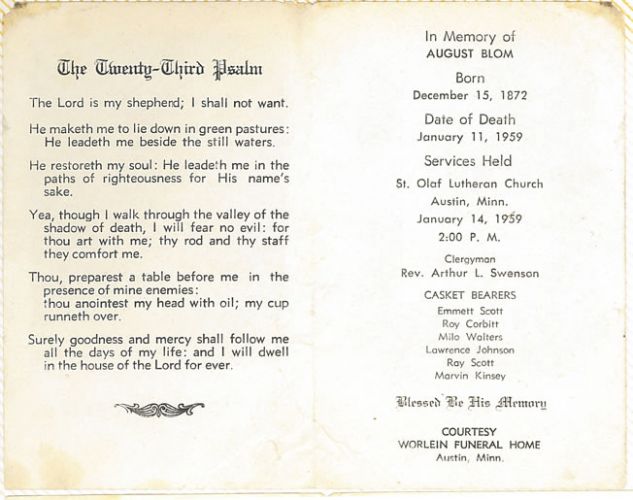 The Twenty-Third Psalm
The Lord is my shepherd; I shall not want.
He maketh me to lie down in green pastures:
He leadeth me beside the still waters.
He restoreth my soul: He leadeth me in the
paths of righteousness for His name's
sake.
Yea, though I walk through the valley of the
shadow of death, I will fear no evil: for
thou art with me; thy rod and thy staff
they comfort me.
Thou, preparest a table before me in the
presence of mine enemies:
thou anointest my head with oil; my cup
runneth over.
Surely goodness and mercy shall follow me
all the days of my life: and I will dwell
in the house of the Lord for ever.
In Memory of
AUGUST BLOM
Born
December 15, 1872
Date of Death
January 11, 1959
Services Held
St. Olaf Lutheran Church
Austin, Minn.
January 14, 1959
2:00 P. M.
Clergyman
Rev. Arthur L. Swenson
CASKET BEARERS
Emmett Scott
Roy Corbitt
Milo Walters
Lawrence Johnson
Ray Scott
Marvin Kinsey
Blessed Be His Memory
COURTESY
WORLEIN FUNERAL HOME
Austin, Minn.